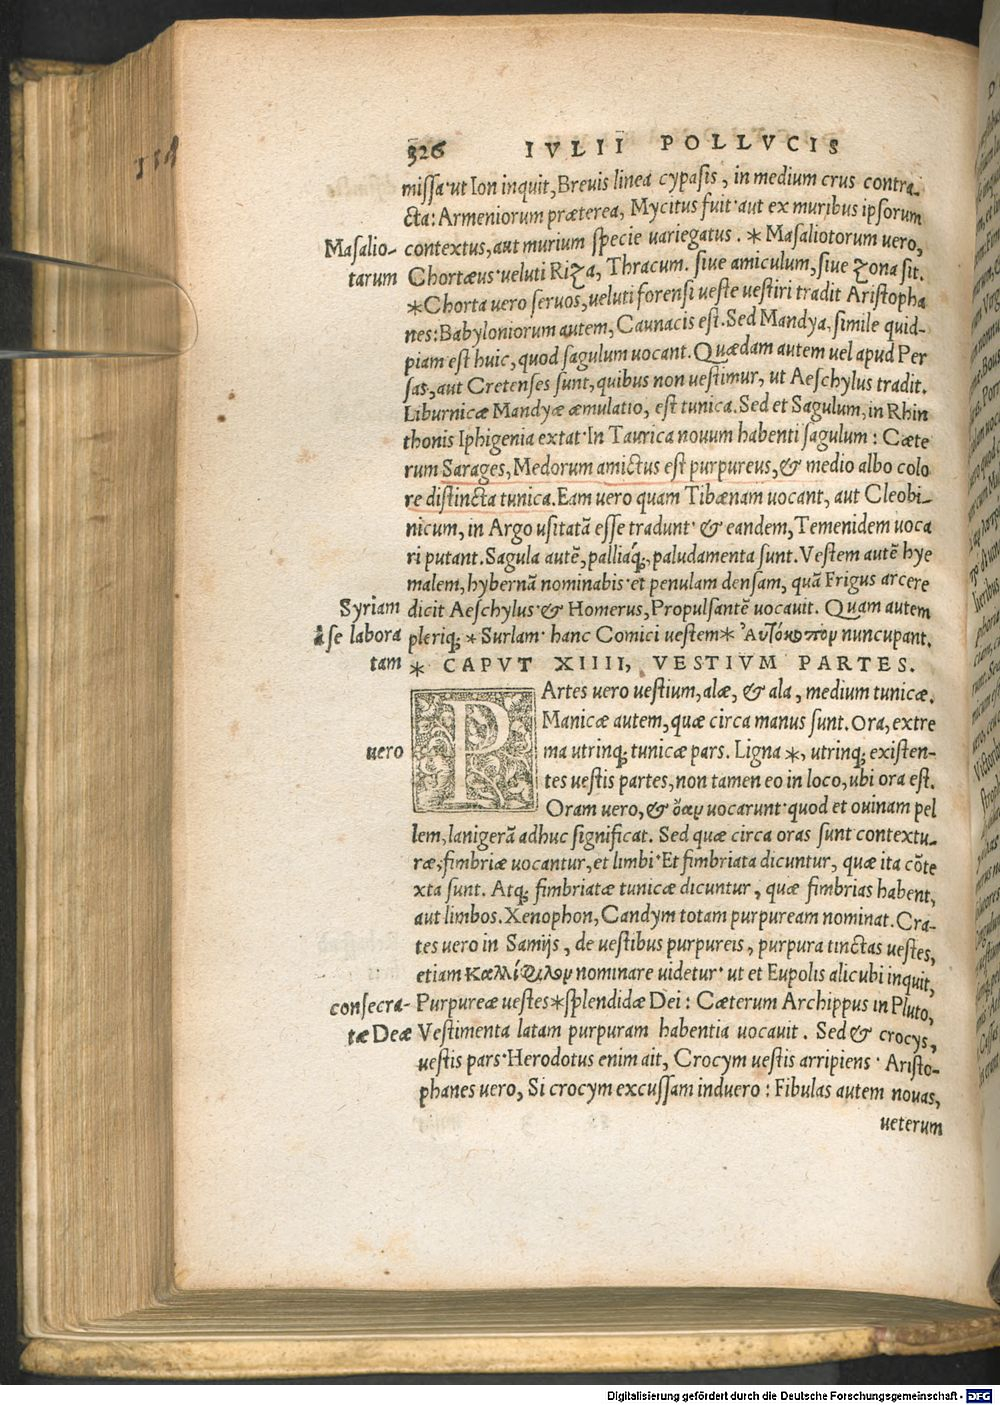 326 IVLII POLLVCIS
missa·ut Ion inquit, Brevis linea cypasis, in medium crus contra-
cta: Armeniorum præterea, Mycitus fuit·aut ex muribus ipsorum
Masalio- contextus, aut murium specie uariegatus. * Masaliotorum uero,
tarum Chortæus·ueluti Riza, Thracum. siue amiculum, siue zona sit.
*Chorta uero seruos, ueluti forensi ueste uestiri tradit Aristopha
nes: Babyloniorum autem, Caunacis est. Sed Mandya, simile quid-
piam est huic, quod sagulum uocant. Quædam autem uel apud Per
sas, aut Cretenses sunt, quibus non uestimur, ut Aeschylus tradit.
Liburnicæ Mandyæ æmulatio, est tunica. Sed et Sagulum, in Rhin
thonis Iphigenia extat·In Taurica nouum habenti sagulum: Cæte
rum Sarages, Medorum amictus est purpureus, & medio albo colo
re distincta tunica. Eam uero quam Tibænam uocant, aut Cleobi-
nicum, in Argo usitatā esse tradunt· & eandem, Temenidem uoca
ri putant. Sagula autē, palliaq́;, paludamenta sunt. Vestem autē hye
malem, hybernā nominabis·et penulam densam, quā Frigus arcere
Syriam dicit Aeschylus·& Homerus, Propulsantē uocauit. Quam autem
à se labora pleriq; * Surlam· hanc Comici uestem* nuncupant.
tam * CAPVT XIIII, VESTIVM PARTES.
PArtes uero uestium, alæ, & ala, medium tunicæ.
Manicæ autem, quæ circa manus sunt. Ora, extre
uero ma utrinq; tunicæ pars. Ligna *, utrinq; existen-
tes uestis partes, non tamen eo in loco, ubi ora est.
Oram uero, & ὄαν uocarunt·quod et ouinam pel
lem, lanigerā adhuc significat. Sed quæ circa oras sunt contextu-
ræ, fimbriæ uocantur, et limbi·Et fimbriata dicuntur, quæ ita cōte
xta sunt. Atq; fimbriatæ tunicæ dicuntur, quæ fimbrias habent,
aut limbos. Xenophon, Candym totam purpuream nominat. Cra-
tes uero in Samijs, de uestibus purpureis, purpura tinctas uestes,
etiam nominare uidetur· ut et Eupolis alicubi inquit,
consecra- Purpureæ uestes*splendidæ Dei: Cæterum Archippus in Pluto,
tæ Deæ Vestimenta latam purpuram habentia uocauit. Sed & crocys,
uestis pars·Herodotus enim ait, Crocym uestis arripiens· Aristo-
phanes uero, Si crocym excussam induero: Fibulas autem nouas,
ueterum
Digitalisierung gefördert durch die Deutsche Forschungsgemeinschaft - DFG